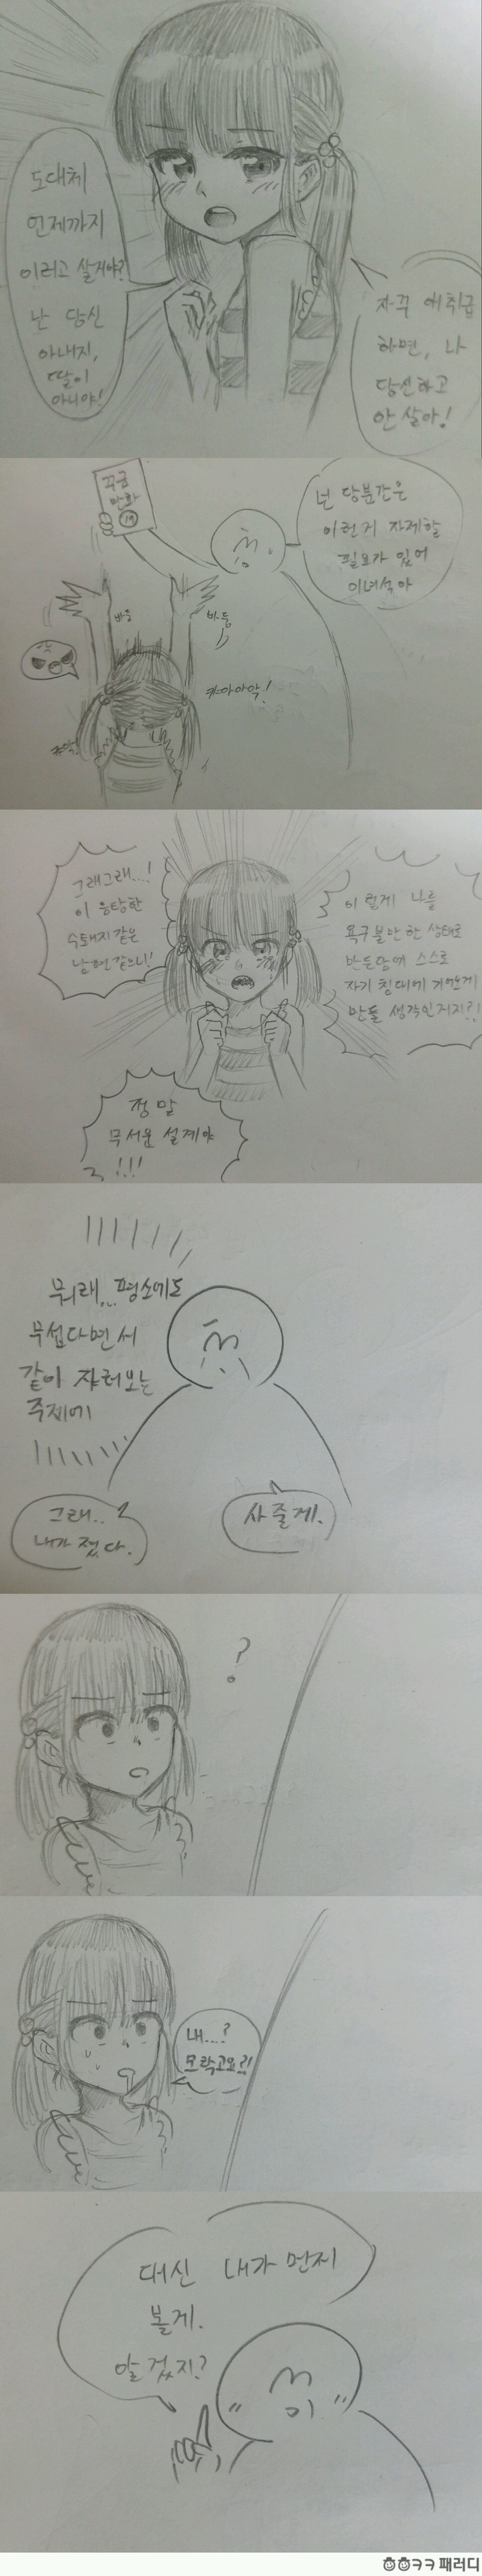 도대체
언제까지
이러고 살거야?
난 당신
아내지,
딸이
아니야!
자꾸 애취급
하면, 나
당신하고
안 살아!
꾸금
만화
19
넌 당분간은
이런거 자제할
필요가 있어
이녀석아
바둥
바둥
캬아아악!
캬악!
그래그래...!
이 음탕한
수퇘지같은
남편같으니!
이렇게 나를
욕구불만한 상태로
만든담에 스스로
자기 침대에 기어오게
만들 생각인거지?!
정말
무서운 설계야
!!!
뭐래... 평소에도
무섭다면서
같이 자려오는
주제에
그래..
내가 졌다.
사 줄게.
?
내...?
모락고요?!
대신 내가 먼저
볼게.
알겠지?
ㅎㅎㅋㅋ 패러디